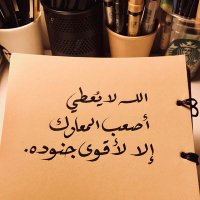 الله لا يُعطي
أصعب المعارك
إلا لأقوى جنوده.